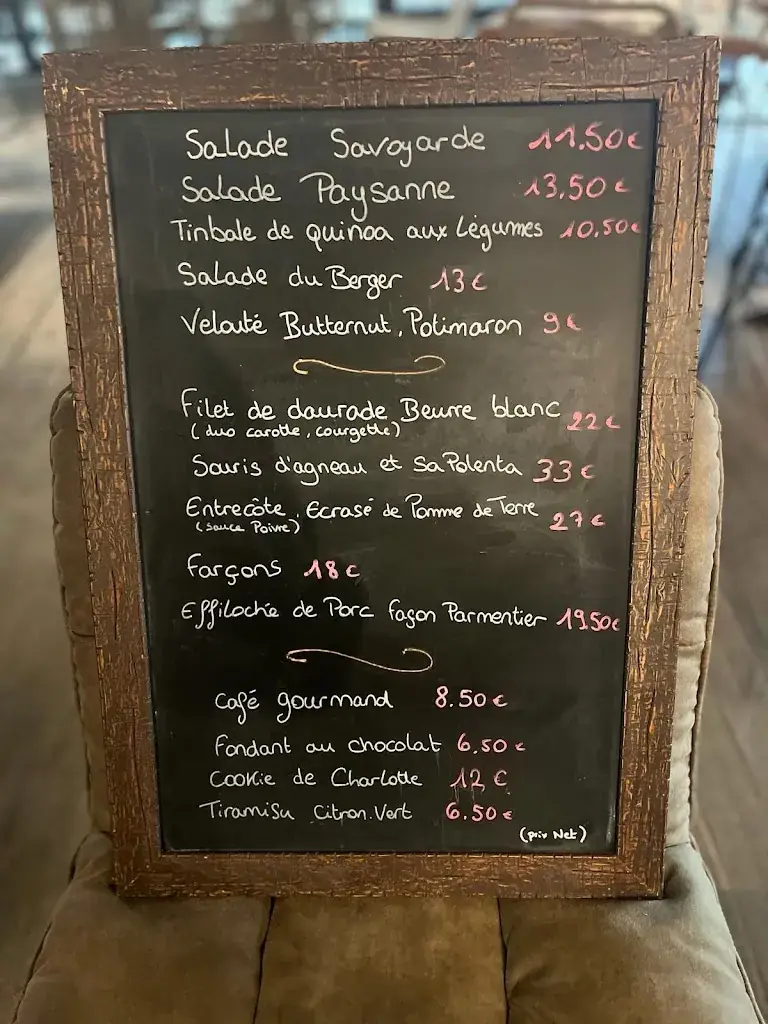 Salade Savoyarde 11.50€
Salade Paysanne 13,50€
Tinbale de quinoa aux Légumes 10,50€
Salade du Berger 13€
Velouté Butternut, Potimaron 9€
Filet de daurade Beurre blanc 22€
(duo carotte, courgette)
Souris d'agneau et sa Polenta 33€
Entrecôte, Ecrasé de Pomme de Terre 27€
(sauce Poivre)
Farçons 18€
Effilochée de Porc façon Parmentier 19,50€
Café gourmand 8.50€
Fondant au chocolat 6.50€
Cookie de Charlotte 12€
Tiramisu Citron.Vert 6.50€
(prix Net)